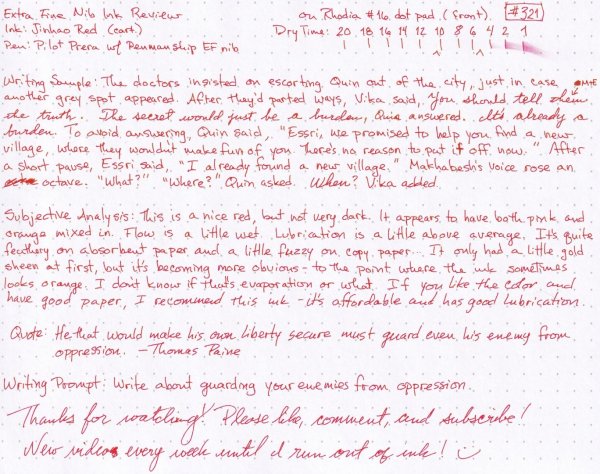 Extra Fine Nib Ink Review on Rhodia #16 dot pad (front). #321
Ink: Jinhao Red (cart.) Dry Time: 20 18 16 14 12 10 8 6 4 2 1
Pen: Pilot Prera w/ Penmanship EF nib
Writing Sample: The doctors insisted on escorting Quin out of the city, just in case
another grey spot appeared. After they'd parted ways, Vika said, You should tell them
the truth. The secret would just be a burden, Quin answered. It's already a
burden. To avoid answering, Quin said, "Essri, we promised to help you find a new
village, where they wouldn't make fun of you. There's no reason to put it off now." After
a short pause, Essri said, "I already found a new village." Makhabesh's voice rose an
octave. "What?" "Where?" Quin asked. When? Vika added.
Subjective Analysis: This is a nice red, but not very dark. It appears to have both pink and
orange mixed in. Flow is a little wet. Lubrication is a little above average. It's quite
feathery on absorbent paper and a little fuzzy on copy paper... It only had a little gold
sheen at first, but it's becoming more obvious - to the point where the ink sometimes
looks orange. I don't know if that's evaporation or what. If you like the color and
have good paper, I recommend this ink - it's affordable and has good lubrication.
Quote: He that would make his own liberty secure must guard even his enemy from
oppression. - Thomas Paine
Writing Prompt: Write about guarding your enemies from oppression.
Thanks for watching! Please like, comment, and subscribe!
New videos every week until I run out of ink!